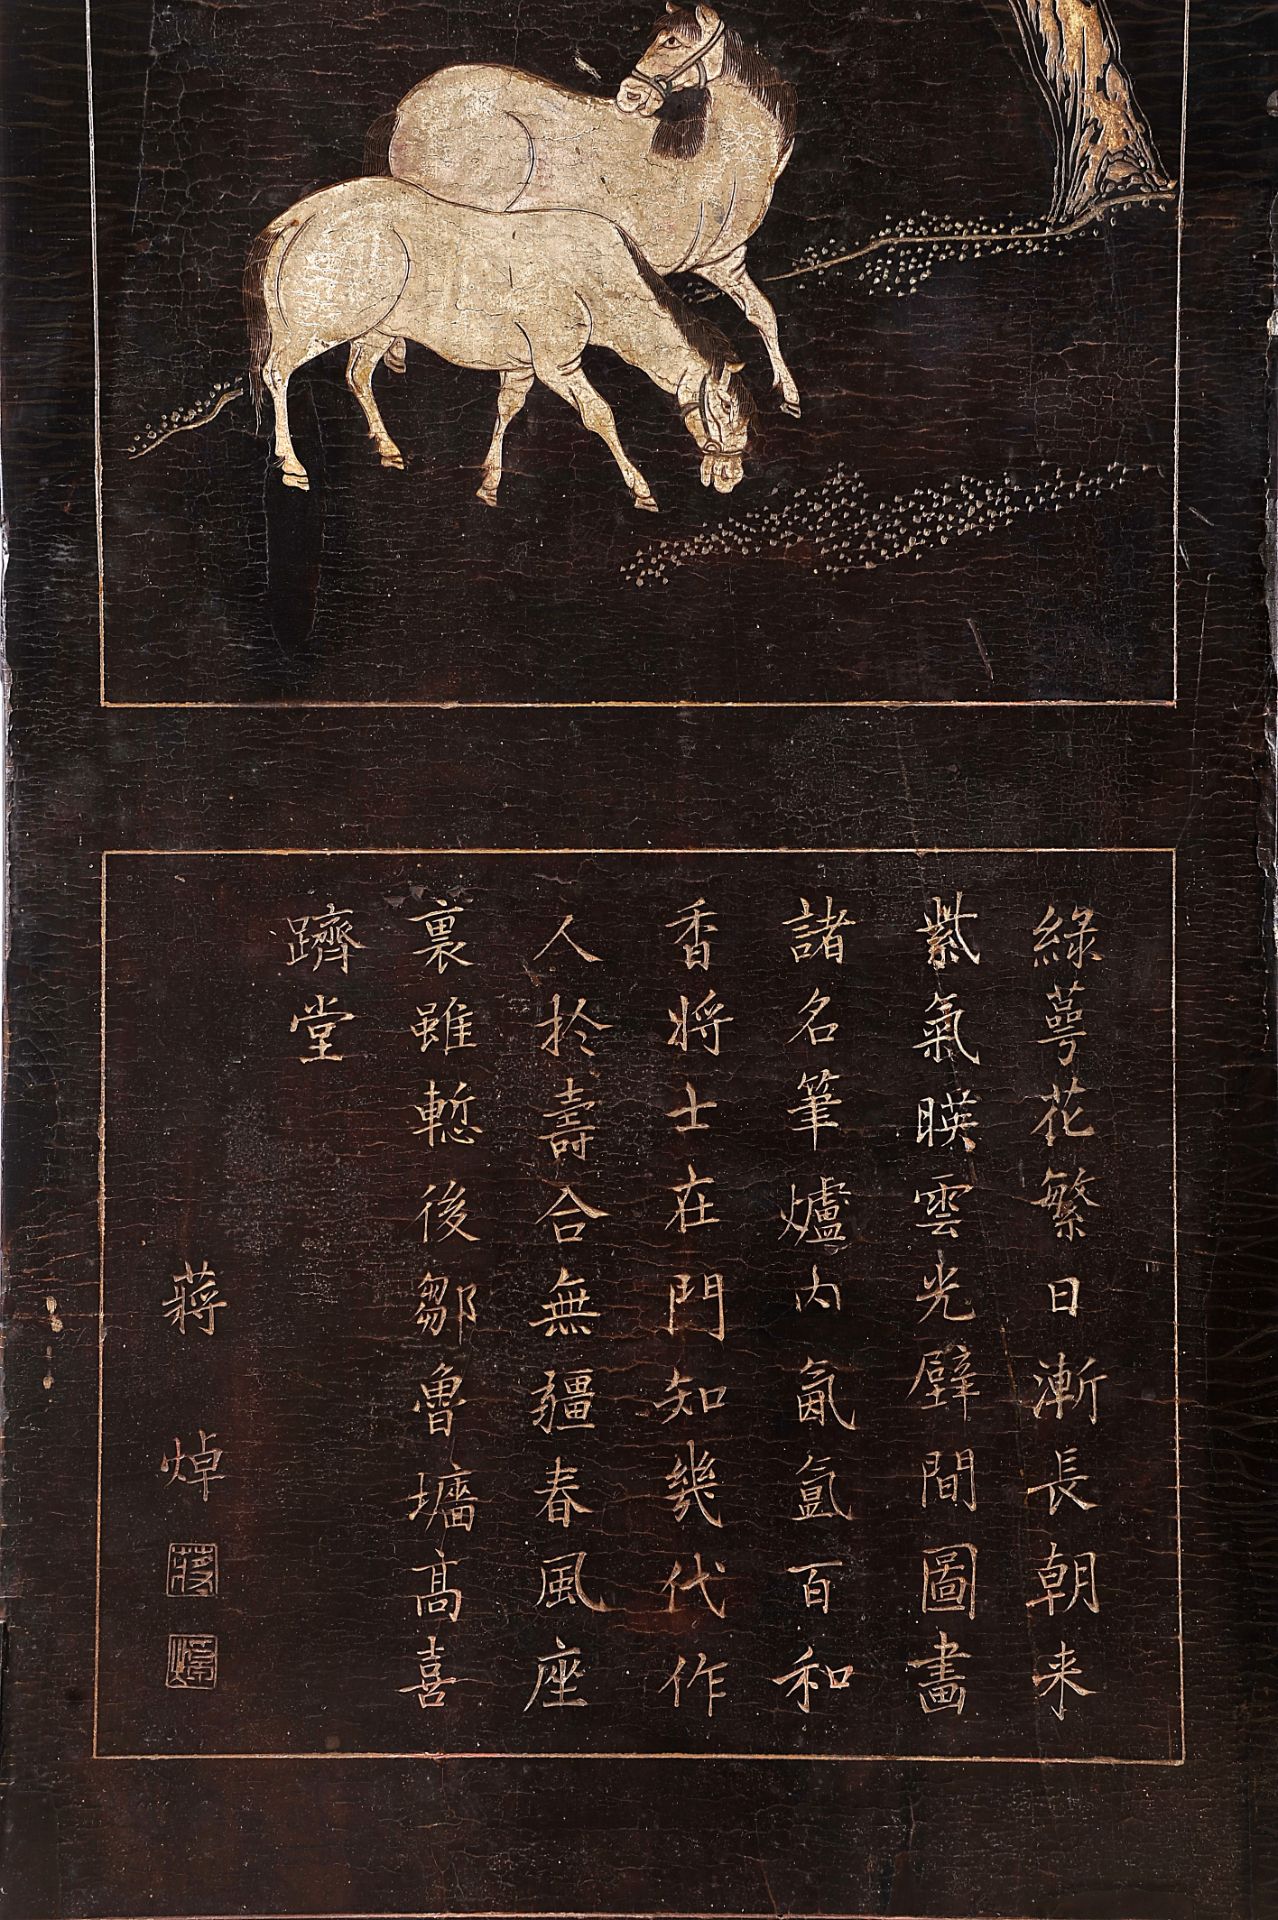 綠萼花繁日漸長朝来
紫氣暎雲光壁間圖畫
諸名筆爐内氤氲百和
香将士在門知幾代作
人扵壽合無疆春風座
裏雖慙後鄒魯墻高喜
躋堂
蔣焯
蔣焯